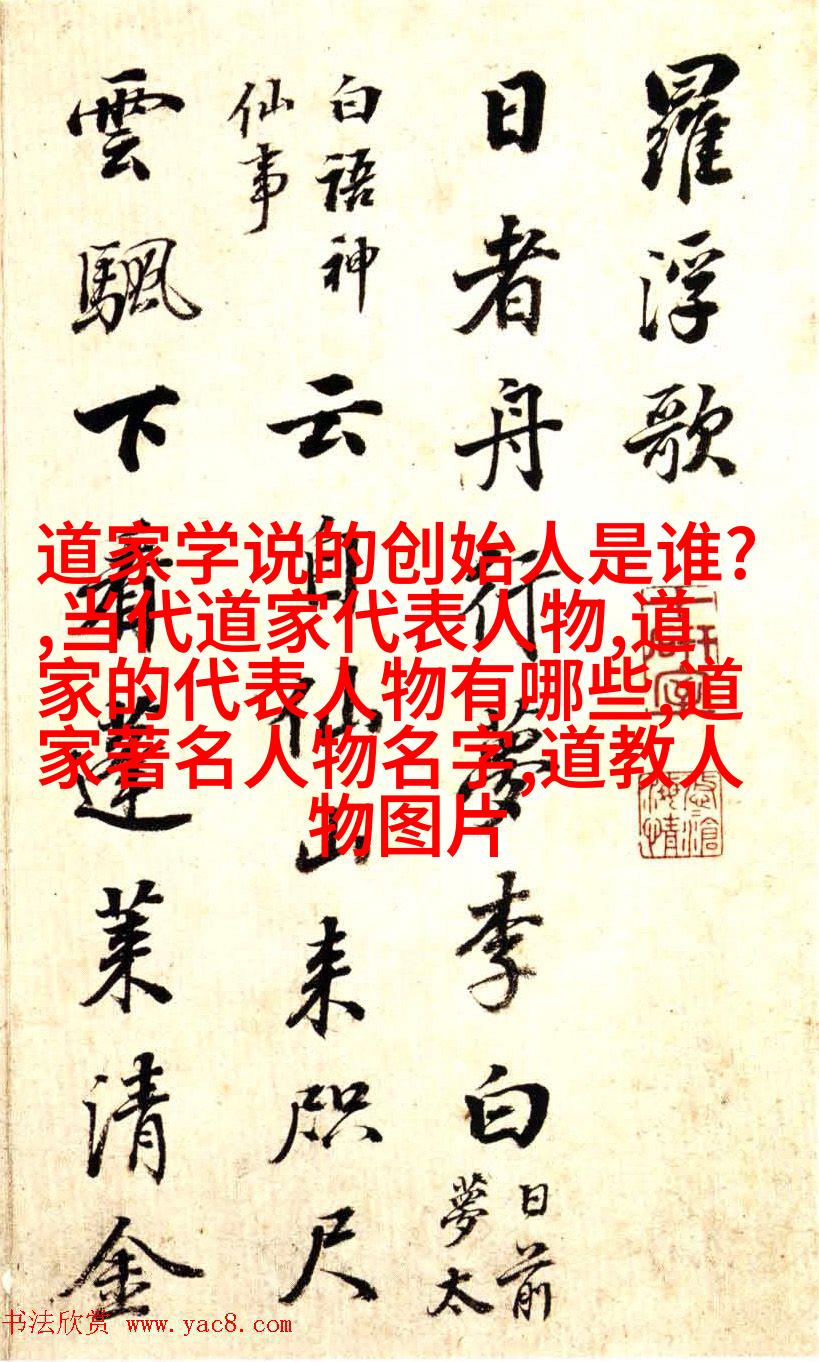 羅浮歌
日者舟行夢李白
日前
夢太
白語神
仙事
云自仙山来咫尺
雲颿下看蓬莱清金
道家学说的创始人是谁?
,当代道家代表人物,道
家的代表人物有哪些,道
家著名人物名字,道教人
物图片
书法欣赏 www.yac8.com